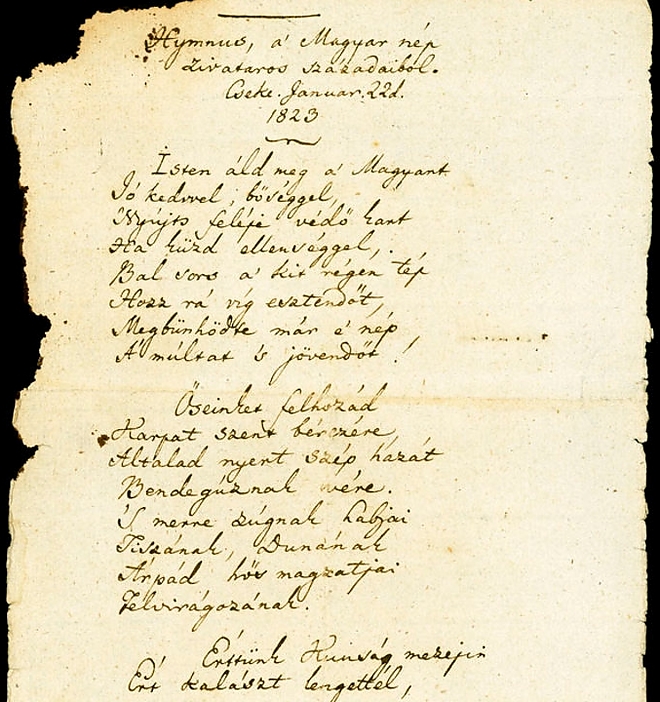 Hymnus, a' Magyar nép
zivataros századaiból.
Cseke. Januar. 22d.
1823
Isten áld meg a' Magyart
Jó kedvvel, bőséggel,
Nyújts feléje védő kart
Ha küzd ellenséggel,
Bal sors a' kit régen tép
Hozz rá víg esztendőt,
Megbünhödte már e' nép
A' múltat 's jövendőt!
Őseinket felhozád
Kárpat szent bérczére,
Általad nyert szép házát
Bendegúznak vére.
'S merre zúgnak habjai
Tiszának, Dunának
Árpád hős magzatjai
Felvirágozának.
Értünk Kunság mezejin
Ért kalászt lengettél,